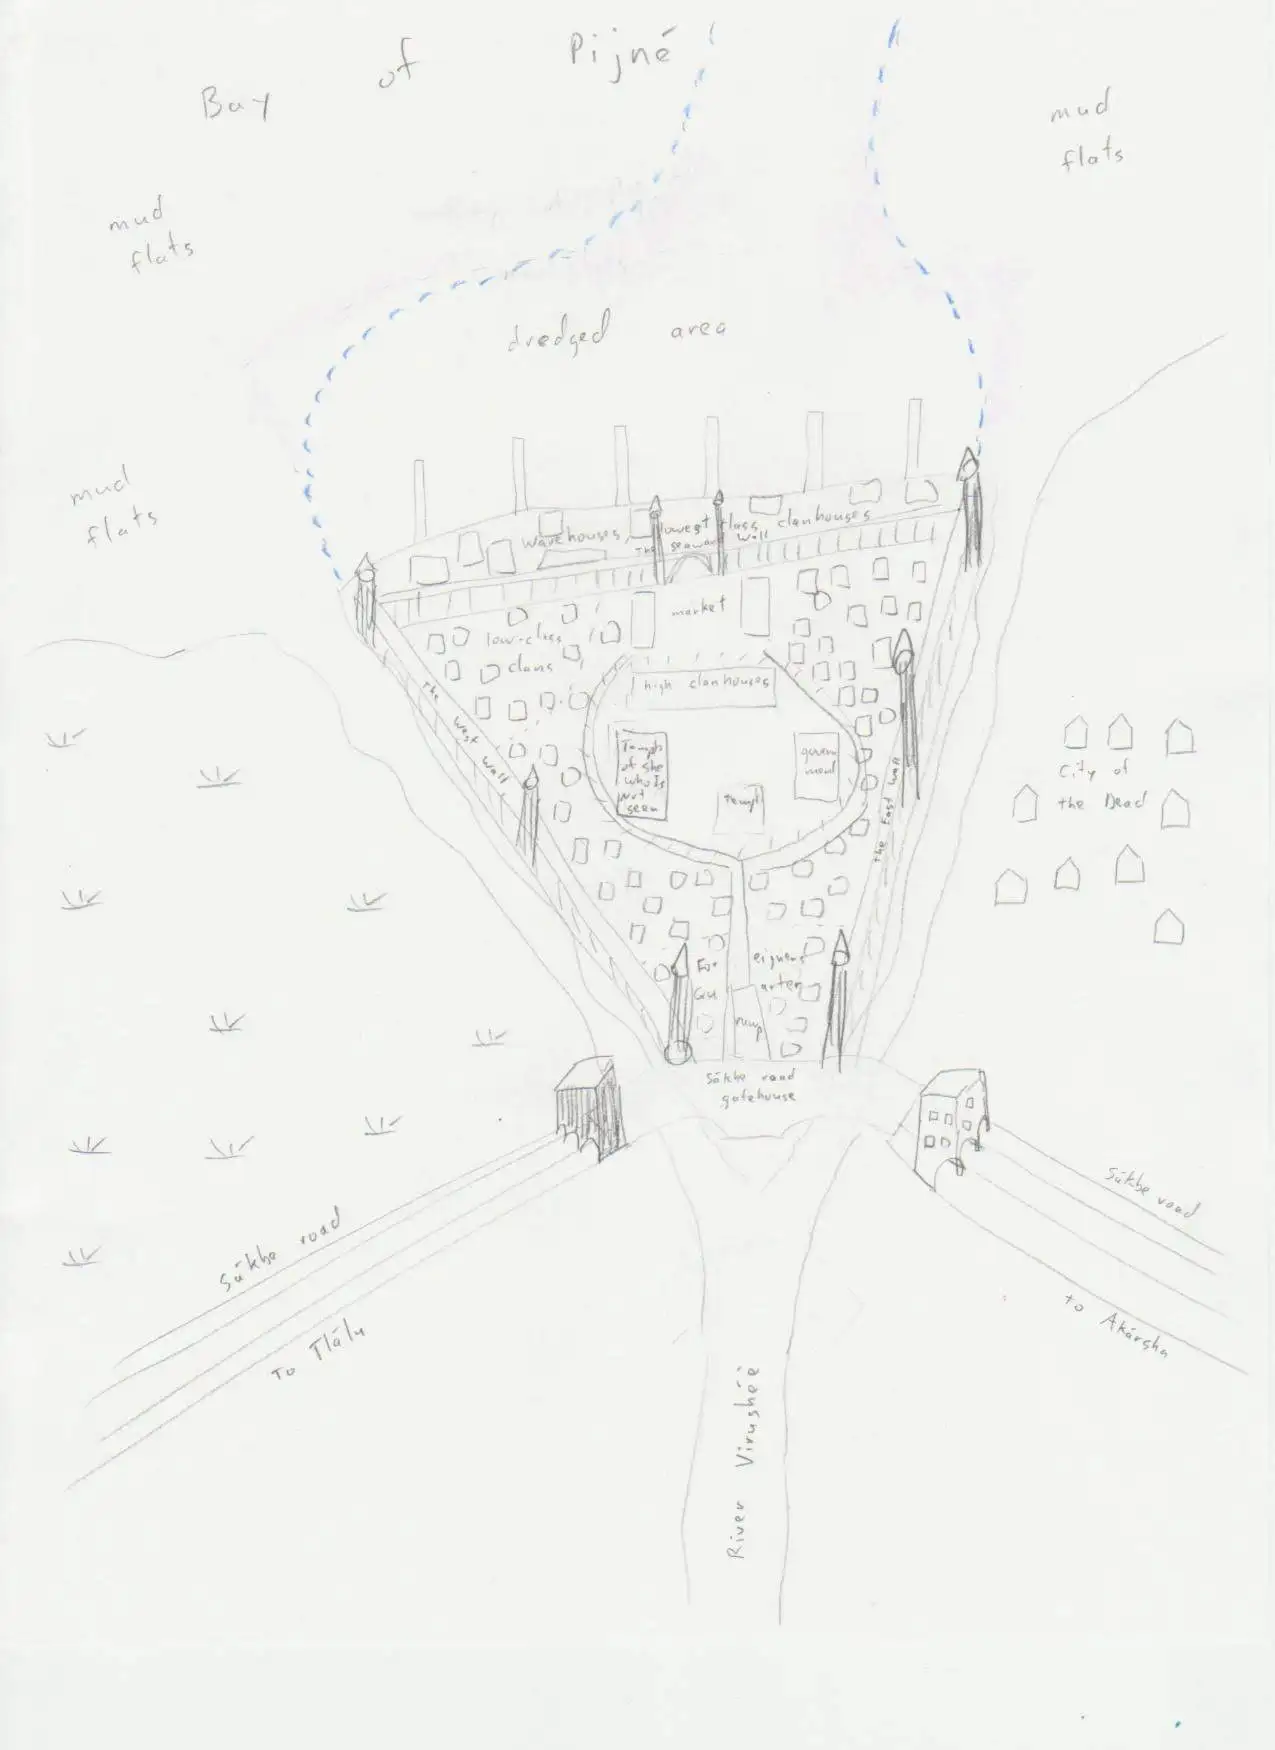 Bay of Pijné
mud
flats
mud
flats
dredged area
mud
flats
warehouses, lowest class clanhouses
The seaward wall
market
low-class
clans
high clanhouses
The West Wall
Temple
of She
who Is
Not
seen
govern
ment
templ
The East Wall
City of
the Dead
For eigners
Qu arter
ramp
Sákbe road
gatehouse
Sákbe road
To Tlálu
Sákbe road
to Akársha
River Virushée